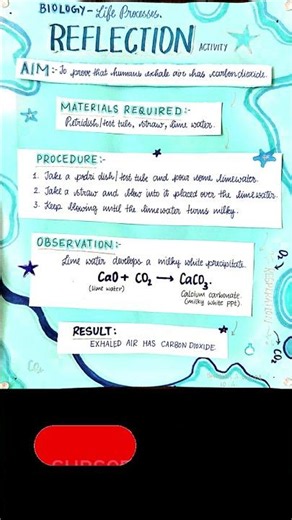 BIOLOGY - Life Processes.
REFLECTION ACTIVITY
AIM:- To prove that humans exhale air has carbondioxide
MATERIALS REQUIRED:-
Petridish/test tube, straw, lime water.
PROCEDURE:-
1. Take a petri dish/test tube and pour some limewater.
2. Take a straw and blow into it placed over the limewater.
3. Keep blowing until the limewater turns milky.
OBSERVATION:-
Lime water develops a milky white precipitate.
CaO + CO₂ → CaCO₃.
(lime water)
Calcium carbonate
(milky white ppt)
O₂
RESPIRATION
CO₂
RESULT:
EXHALED AIR HAS CARBONDIOXIDE.
CO₂